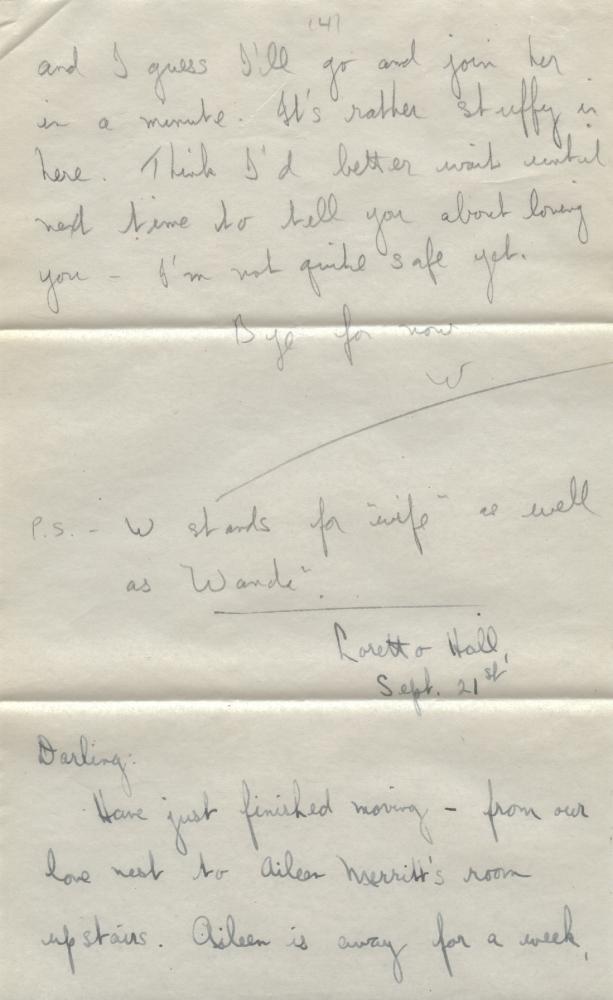 (4)
and I guess I'll go and join her
in a minute. It's rather stuffy in
here. Think I'd better wait until
next time to tell you about loving
you - I'm not quite safe yet.
Bye for now
W
P.S. - W stands for "wife" as well
as "Wanda".
Loretto Hall,
Sept. 21st
Darling:
Have just finished moving - from our
love nest to Aileen Merritt's room
upstairs. Aileen is away for a week,